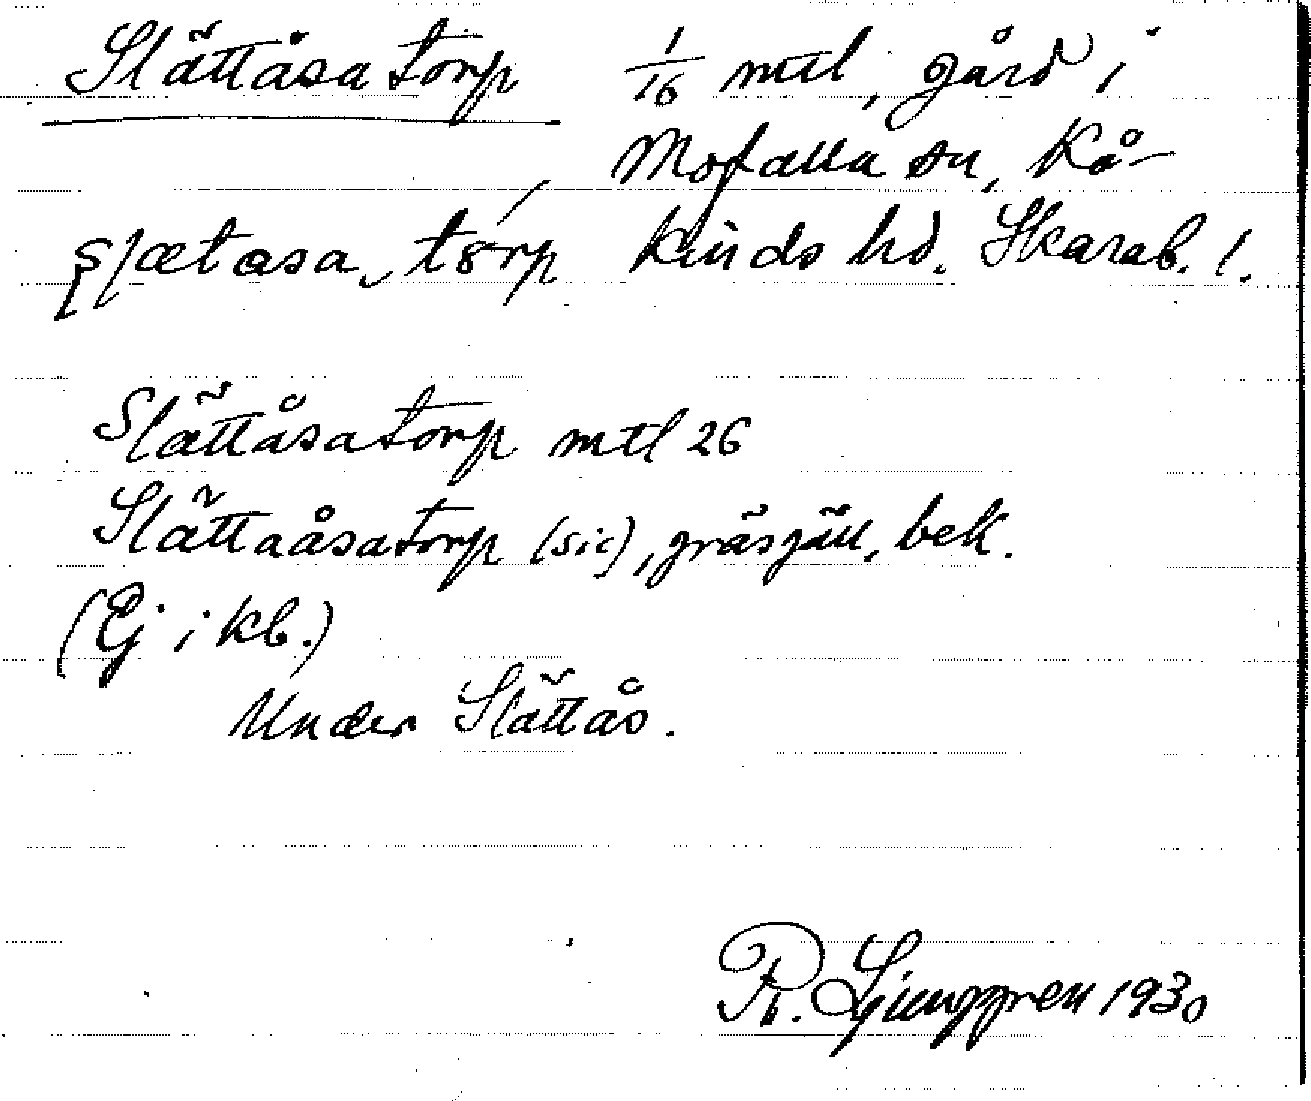 Slättåsatorp 1/16 mtl, gård i
Mofalla sn, Kå-
kinds hd. Skarab. l.
Slättåsatorp mtl 26
Slättaåsatorp (sic), gräsgäll, bek.
(Ej i kb.)
Under Slättås.
R. Ljunggren 1930